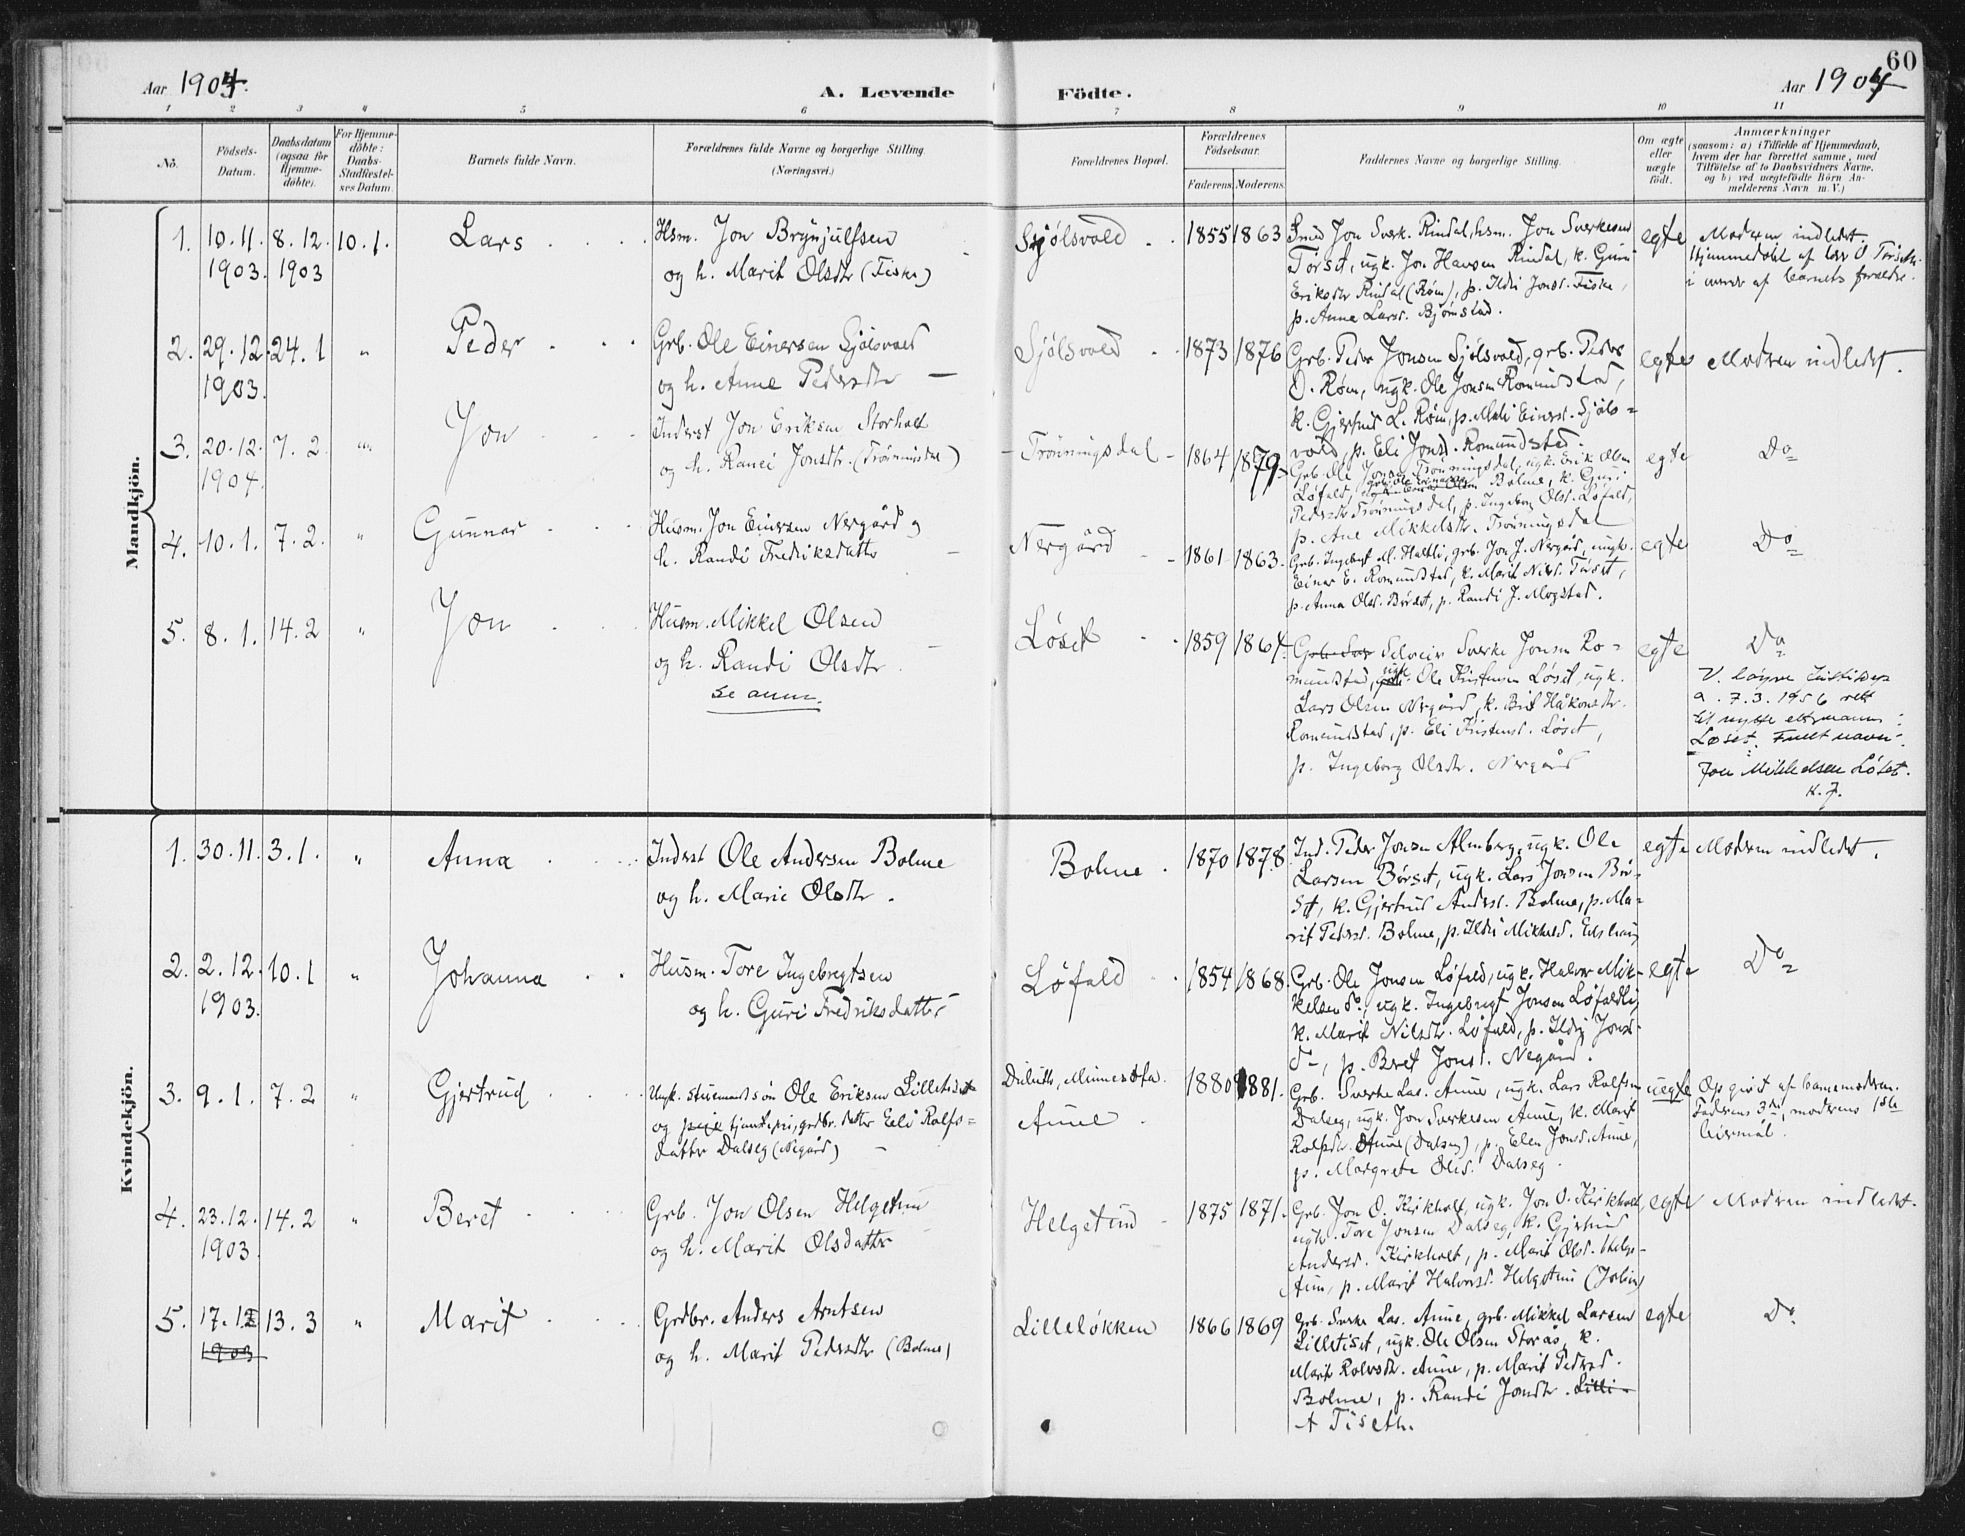 60
Aar 1904.
A. Levende
Födte.
Aar 1904
1 2 3 4 5 6 7 8 9 10 11
Nö.
Födsels-
Datum.
Daabsdatum
(ogsaa for
Hjemme-
döbte).
For Hjemme-
döbte:
Daabs-
Stadfæstel-
ses Datum.
Barnets fulde Navn.
Forældrenes fulde Navne og borgerlige Stilling.
(Næringsvei.)
Forældrenes Bopæl.
Forældrenes
Födselsaar.
Faderens
Moderens
Faddernes Navne og borgerlige Stilling.
Om ægte
eller
uægte
födt.
Anmærkninger
(saasom: a) i Tilfælde af Hjemmedaab,
hvem der har forrettet samme, med
Tilföielse af to Daabsvidners Navne,
og b) ved uægtefödte Börn An-
melderens Navn m. V.)
Mandkjön.
1. 10.11. 8.12. 10.1. Lars
1903. 1903
Hsm. Jon Brynjulfsen
og h. Marit Olsdtr (Fiske)
Sjølsvold 1855 1863
Smed Jon Sverk. Rindal, hsm. Jon Sverkesen
Tørset, ugk. Jon Hansen Rindal, k. Guri
Eriksdtr Rindal (Røm), p. Ildri Jonsd. Fiske,
p. Anna Larsd. Bjørnstad.
egte
Modren indledet.
Hjemmedøbt af Lars O Tørseth
i nærvær af barnets forældre.
2. 29.12. 24.1 " Peder
1903.
Grb. Ole Einersen Sjølsvold
og h. Anne Pedersdtr
Sjølsvold 1873 1876
Grb. Peder Jonsen Sjølsvold, grb. Peder
O. Røm, ugk. Ole Jonsen Romundstad,
k. Gjertrud L. Røm, p. Mali Einersd. Sjøls-
vold, p. Eli Jonsd. Romundstad.
egte Modren indledet.
3. 20.12. 7.2 " Jon
1904.
Inderst Jon Eriksen Storholt
og h. Ranei Jonsdtr. (Trønningsdal)
Trønningsdal 1864 1879
Grb. Ole Jonsen Trønningsdal, ugk. Erik Olsen
Løfald, Bolme, k. Guri
Pedersdtr Trønningsdal, p. Ingeborg Olsd. Løfald,
p. Ane Mikkelsdtr. Trønningsdal
egte Do
4. 10.1. 7.2. " Gunnar
Husm. Jon Einersen Nergård og
h. Randi Fredriksdatter
Nergård 1861 1863.
Grb. Ingebrigt M. Holtli, grb. Jon J. Nergård, ungk.
Einar E. Romundstad, k. Marit Nilsd. Tørset,
p. Anna Olsd. Børset, p. Randi J. Mogstad.
egte Do
5. 8.1. 14.2 " Jon
Husm. Mikkel Olsen
og h. Randi Olsdtr
se anm.
Løset 1859 1864.
Selveier Sverke Jonsen Ro-
mundstad, ugk. Ole Kristensen Løset, ugk.
Lars Olsen Nergård, k. Brit Håkonsdtr.
Romundstad, p. Eli Kristensd. Løset,
p. Ingeborg Olsdtr. Nergård
egte Do
a. 7.3.1956 rett
til nytte etternamn:
Løset. Fullt navn:
Jon Mikkelsen Løset.
K. J.
Kvindekjön.
1. 30.11. 3.1. " Anna
Inderst Ole Andersen Bolme
og h. Marie Olsdtr.
Bolme. 1870 1878
Ind. Peder Jonsen Almberg, ugk. Ole
Larsen Børset, ugk. Lars Jonsen Bør-
set, k. Gjertrud Andersd. Bolme, p. Ma-
rit Pedersd. Bolme, p. Ildri Mikkelsd.
egte Modren indledet.
2. 2.12. 10.1 " Johanna
1903.
Husm. Tore Ingebrigtsen
og h. Guri Fredriksdatter
Løfald 1854 1868.
Grb. Ole Jonsen Løfald, ugk. Halvor Mik-
kelsen do, ugk. Ingebrigt Jonsen Løfaldli,
k. Marit Nilsdtr. Løfald, p. Ildri Jonsd.
do, p. Beret Jonsd. Negård.
egte Do
3. 9.1. 7.2 " Gjertrud
Ungk. stuemandssøn Ole Eriksen Lilletiset
og pige tjenstepi, grdbr. datter Eli Rolfs-
datter Dalseg (Negård)
Duluth, Minnesota.
Aune
1880 1881.
Grb. Sverke Las. Aune, ugk. Lars Rolfsen
Dalseg, ugk. Jon Sverkesen Aune, k. Marit
Rolfsdtr. Aune (Dalseg), p. Elen Jonsd. Aune,
p. Margrete Olsd. Dalseg.
uegte
Opgivet af barnemodren.
Faderens 3die, moderens 1ste
leiermål.
4. 23.12. 14.2 " Beret
1903.
Grb. Jon Olsen Helgetun
og h. Marit Olsdatter
Helgetun 1875 1871.
Grb. Jon O. Kirkholt, ugk. Jon O. Kirkholt,
ugk. Tore Jonsen Dalseg, k. Gjertrud
Andersd. Kirkholt, p. Marit Olsd. Helge-
tun, p. Marit Halvorsd. Helgetun
egte Modren indledet.
5. 17.12 13.3 " Marit
1903
Grdbr. Anders Arntsen
og h. Marit Pedersdtr (Bolme)
Lilleløkken 1866 1869
Grb. Sverke Las. Aune, grb. Mikkel Larsen
Lilletiset, ugk. Ole Olsen Storås, k.
Marit Rolvsdtr. Aune, p. Marit Pedersd.
Bolme, p. Randi Jonsdtr. Lilli-
Tiseth.
egte Do